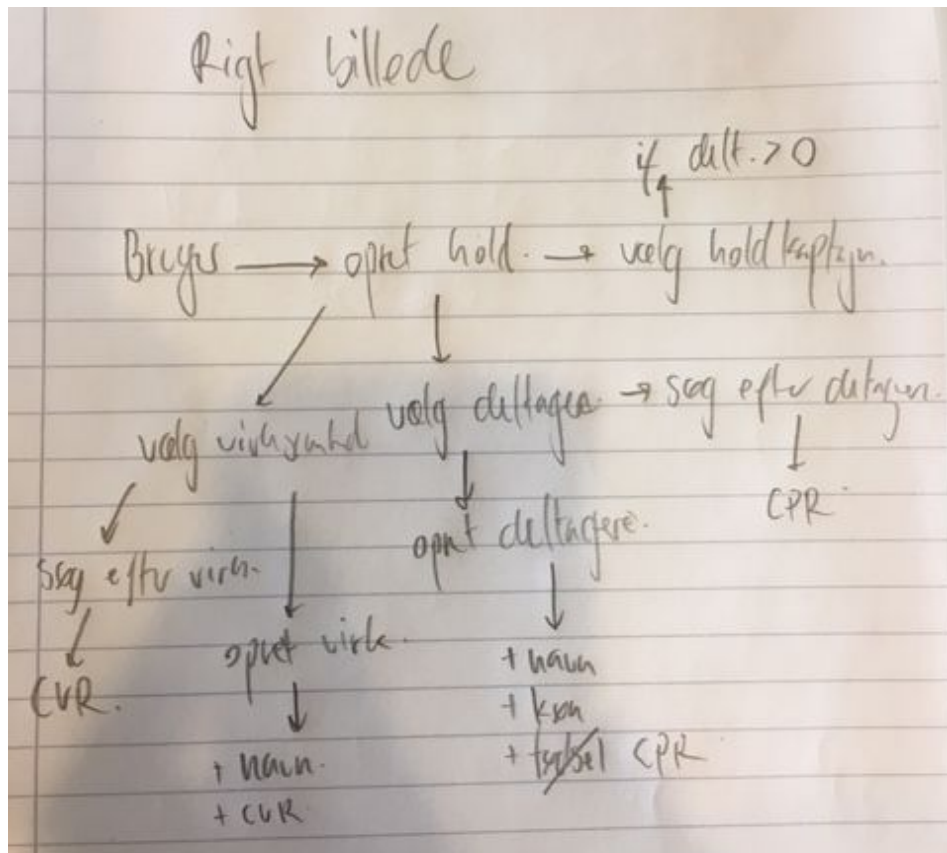 Rigt billede
if delt. > 0
Bruger → opret hold. → vælg holdkaptajn.
vælg virksymhd
vælg deltagere → søg efter deltagere.
CPR.
søg efter virk.
opret deltagere.
CVR.
opret virk.
+ navn
+ køn
+ CPR
+ navn.
+ CVR.